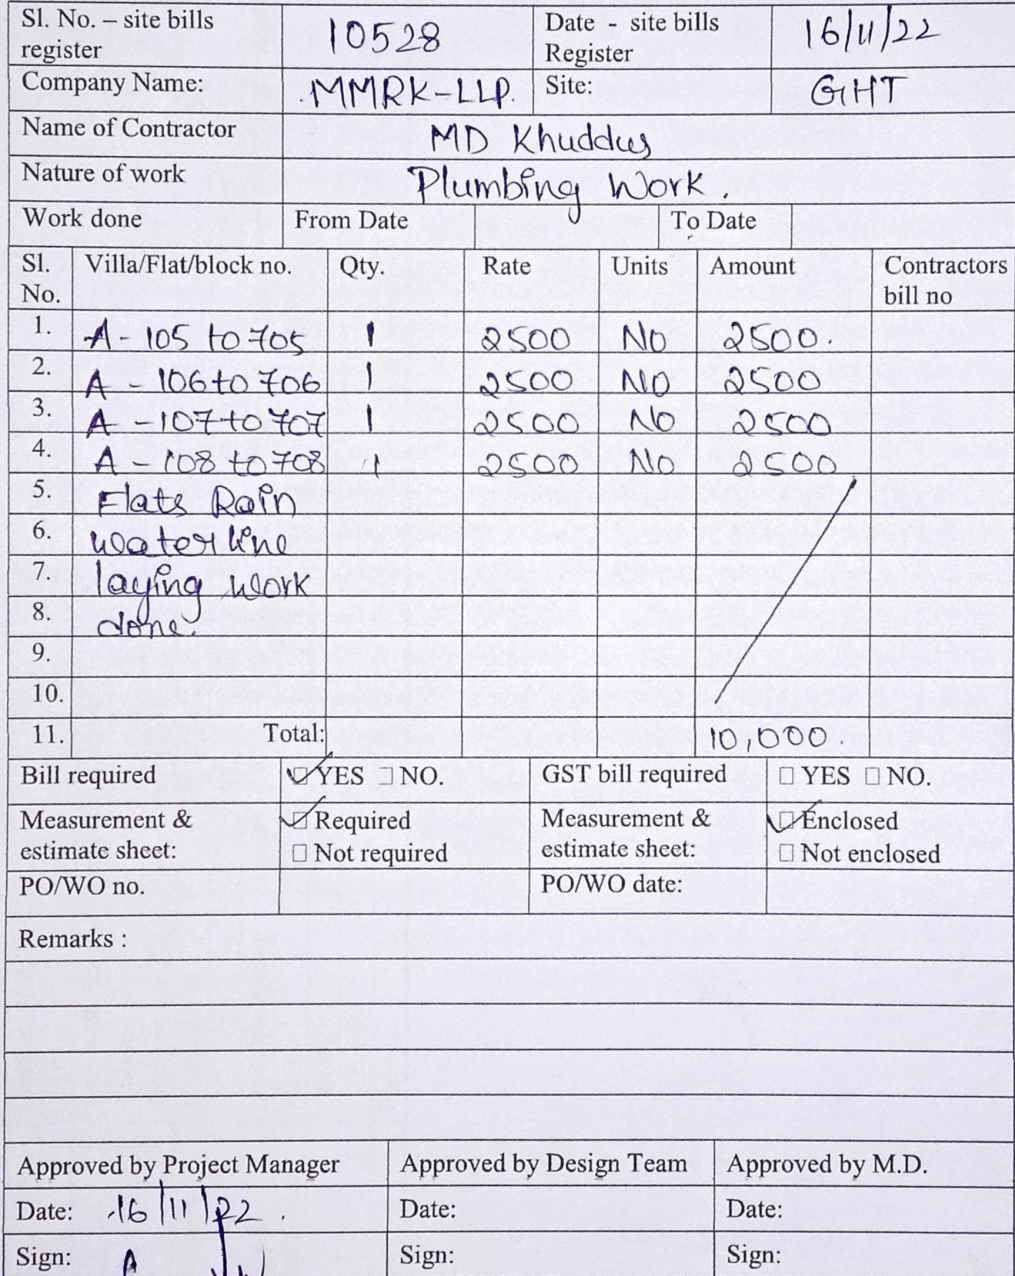 Sl. No. – site bills register 10528 Date - site bills Register 16/11/22
Company Name: MMRK-LLP. Site: GHT
Name of Contractor MD Khuddus
Nature of work Plumbing Work.
Work done From Date To Date
Sl. No. Villa/Flat/block no. Qty. Rate Units Amount Contractors bill no
1. A - 105 to 705 1 2500 NO 2500.
2. A - 106 to 706 1 2500 NO 2500
3. A - 107 to 707 1 2500 NO 2500
4. A - 108 to 708 1 2500 NO 2500
5. Flats Rain
6. water line
7. laying work
8. done.
9.
10.
11. Total: 10,000
Bill required ☑ YES □ NO. GST bill required □ YES □ NO.
Measurement & estimate sheet: ☑ Required □ Not required Measurement & estimate sheet: ☑ Enclosed □ Not enclosed
PO/WO no. PO/WO date:
Remarks :
Approved by Project Manager Approved by Design Team Approved by M.D.
Date: 16/11/22 Date: Date:
Sign: Sign: Sign: